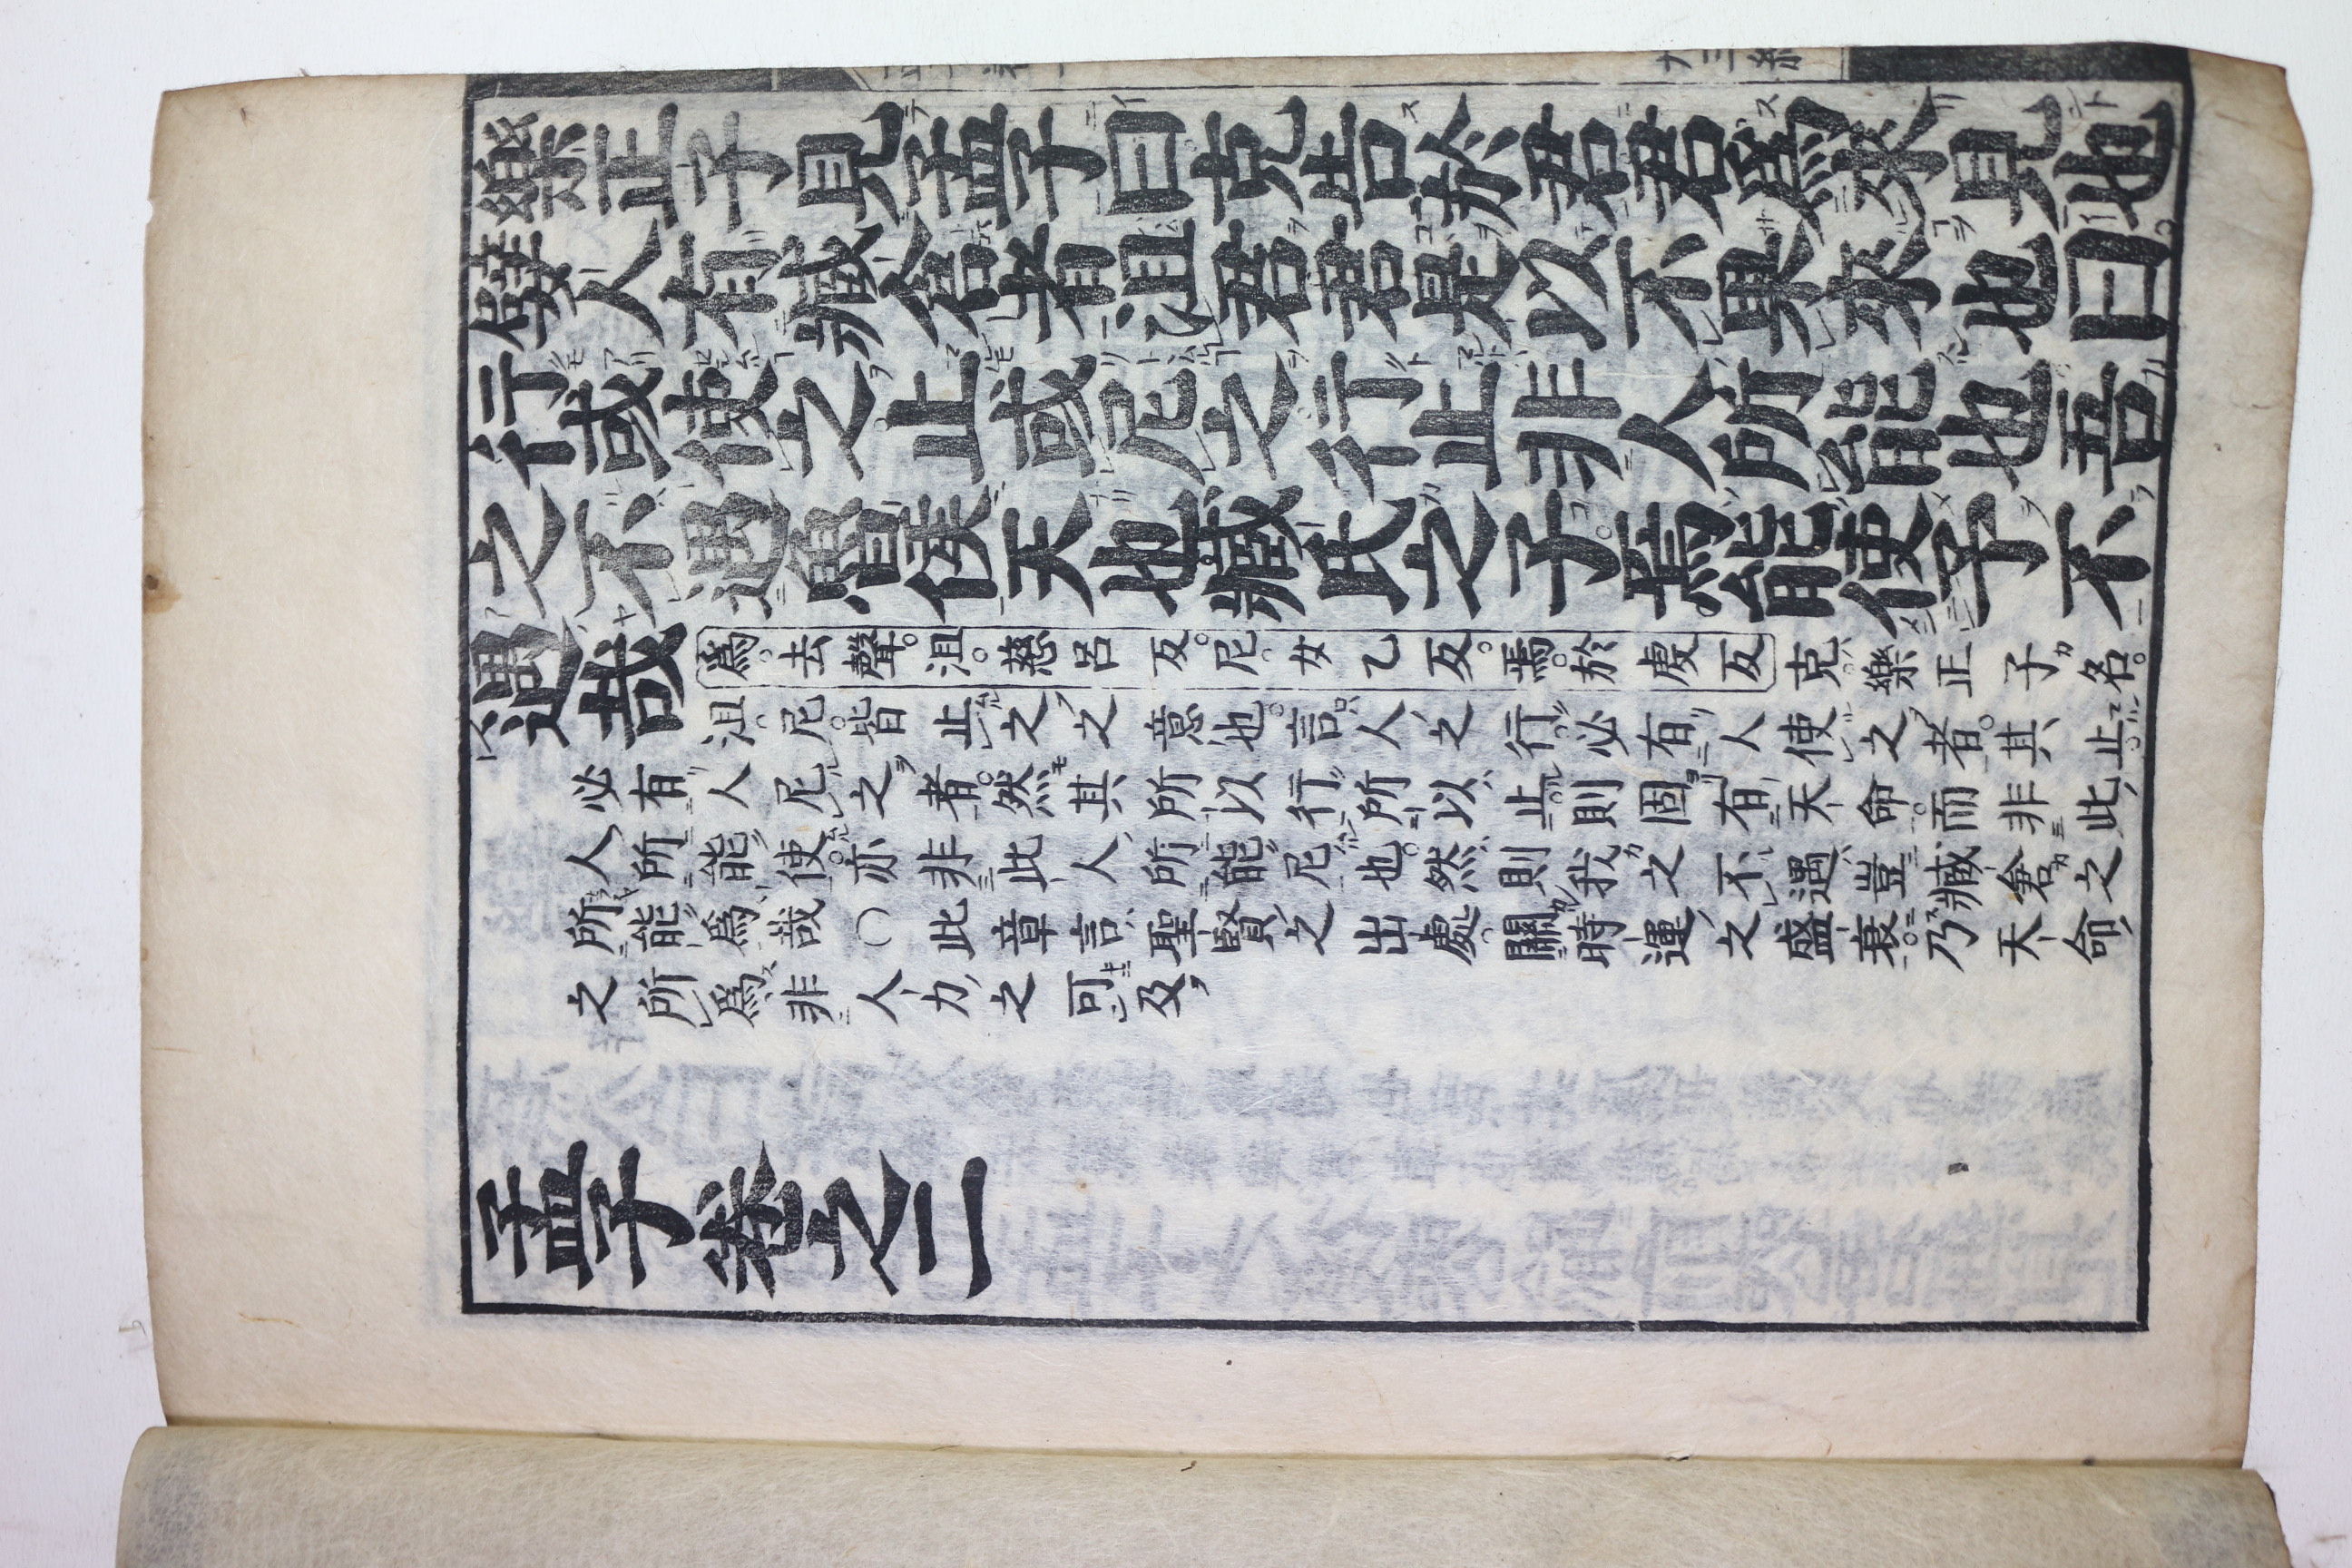 樂正子見孟子曰克告於君君爲來見也
嬖人有臧倉者沮君君是以不果來也曰
行或使之止或尼之行止非人所能也吾
之不遇魯侯天也臧氏之子焉能使予不
遇哉爲去聲。沮。慈呂反。尼。女乙反。焉。於虔反克樂正子名。
沮尼。皆止之之意也。言人之行必有人使之者。其止。
必有人尼之者。然其所以行所以止則固有天命。而非此
人所能使。亦非此人所能尼也。然則我之不遇豈臧倉之
所能爲哉○此章言聖賢之出處。關時運之盛衰。乃天命
之所爲非人力之可及
孟子卷之二